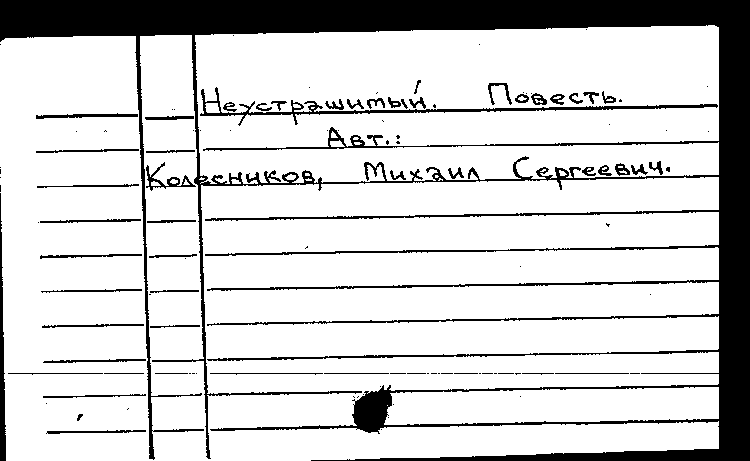 Неустрашимый. Повесть.
Авт.:
Колесников, Михаил Сергеевич.